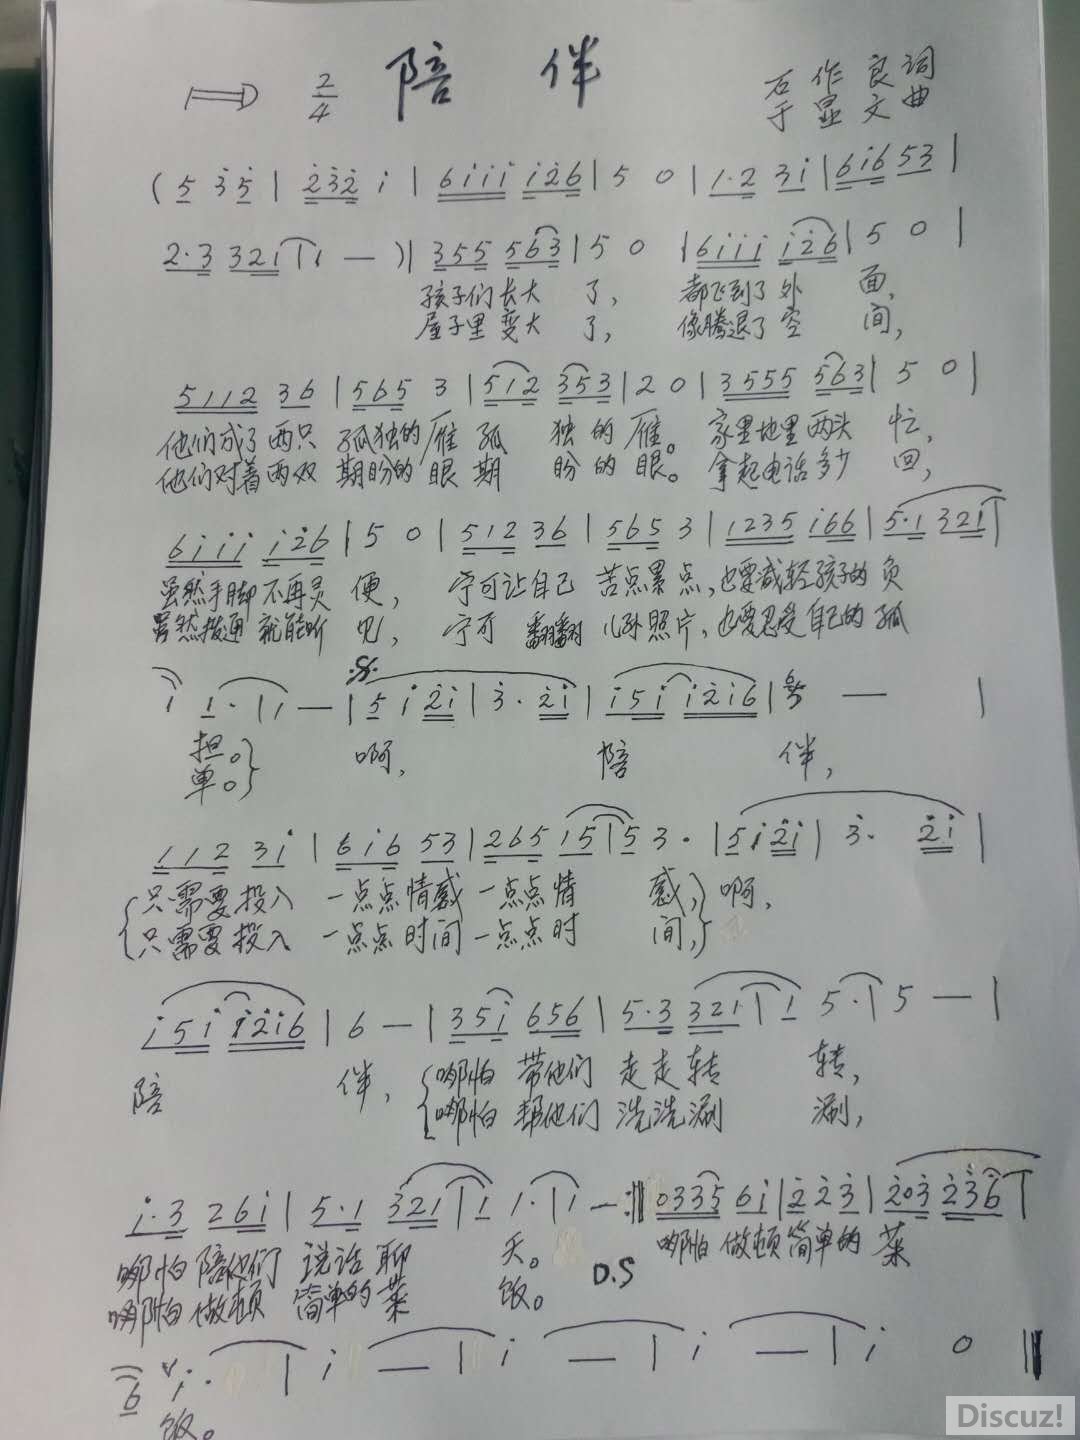 1=D 2/4 陪伴 石作良词
于显文曲
( 5 3 5 | 2 3 2 i | 6 i i i i 2 6 | 5 0 | 1·2 3 i | 6 i 6 5 3 |
2·3 3 2 1 | 1 — ) | 3 5 5 5 6 3 | 5 0 | 6 i i i i 2 6 | 5 0 |
孩子们长大了, 都飞到了外面,
屋子里变大了, 像腾退了空间,
5 1 1 2 3 6 | 5 6 5 3 | 5 1 2 3 5 3 | 2 0 | 3 5 5 5 5 6 3 | 5 0 |
他们成了两只孤独的雁孤独的雁。家里地里两头忙,
他们对着两双期盼的眼期盼的眼。拿起电话多少回,
6 i i i i 2 6 | 5 0 | 5 1 2 3 6 | 5 6 5 3 | 1 2 3 5 i 6 6 | 5·1 3 2 1 |
虽然手脚不再灵便, 宁可让自己苦点累点,也要减轻孩子的负
虽然拨通就能听见, 宁可翻翻儿孙照片,也要忍受自己的孤
i 1· | 1 — | 5 i 2 i | 3· 2 i | i 5 i i 2 i 6 | 6 — |
担。} 啊, 陪伴,
单。}
1 1 2 3 i | 6 i 6 5 3 | 2 6 5 1 5 | 5 3· | 5 i 2 i | 3· 2 i |
{只需要投入一点点情感一点点情感,} 啊,
{只需要投入一点点时间一点点时间,}
i 5 i i 2 i 6 | 6 — | 3 5 i 6 5 6 | 5·3 3 2 1 | 1 5· | 5 — |
陪伴, {哪怕带他们走走转转,
{哪怕帮他们洗洗涮涮,
i·3 2 6 i | 5·1 3 2 1 | 1 1· | 1 — :‖ 0 3 3 5 6 i | 2 2 3 | 2 0 3 2 3 6 |
哪怕陪他们说话聊天。 D.S 哪怕做顿简单的菜
哪怕做顿简单的菜饭。
6 i· | i — | i — | i — | i 0 ‖
饭。
Discuz!